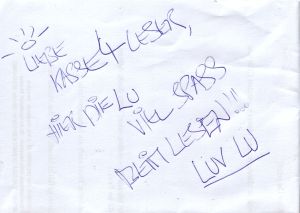 LIEBE
KASSE4 LESER,
HIER DIE LU
VIEL SPASS
BEIM LESEN!!
LUV LU